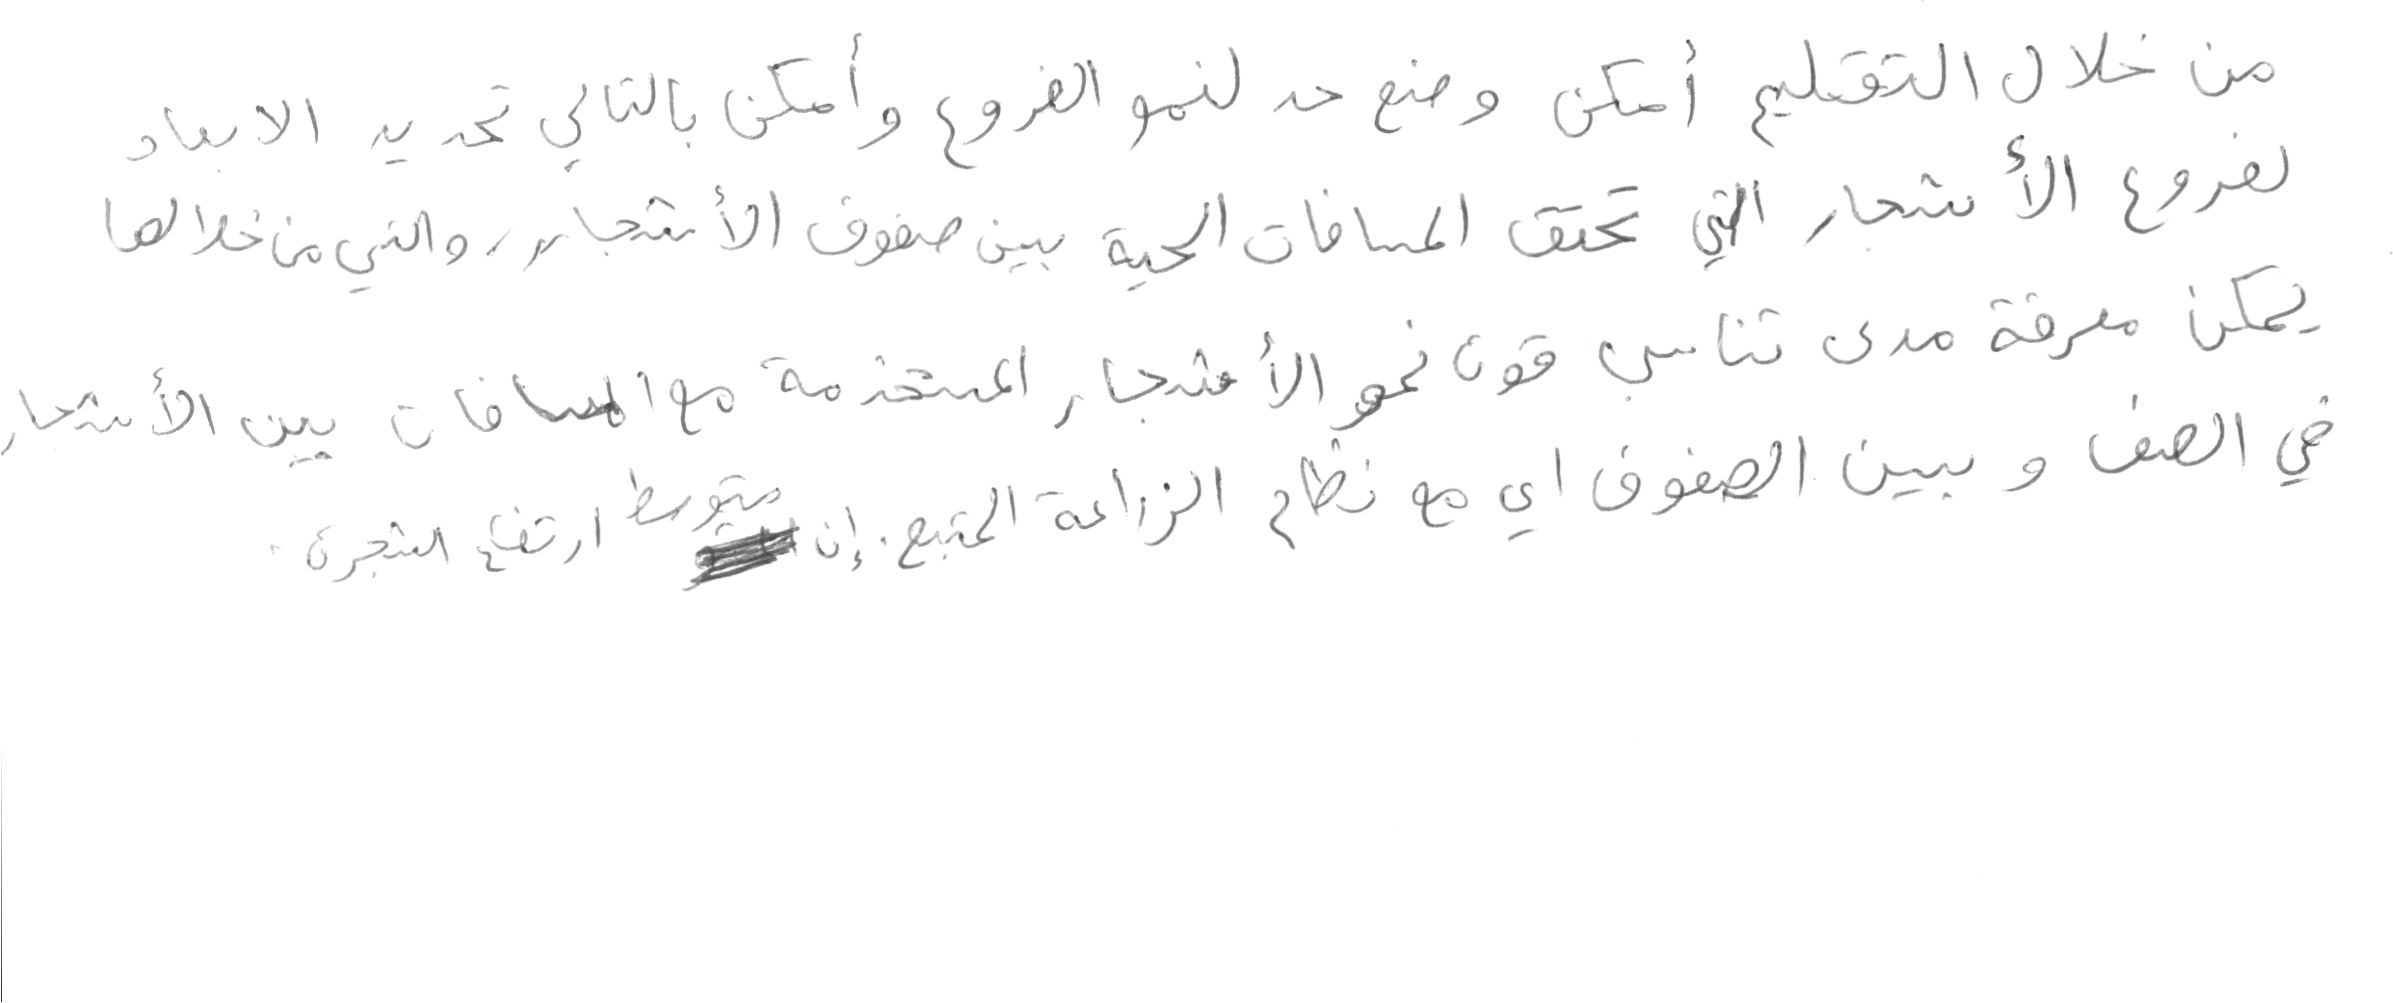 من خلال التقليم أمكن وضع حد لنمو الفروع وأمكن بالتالي تحديد الابعاد
لفروع الأشجار التي تحقق المسافات الحية بين صفوف الأشجار، والتي من خلالها
يمكن معرفة مدى تناسب قوة نمو الأشجار المستخدمة مع المسافات بين الأشجار
في الصف وبين الصفوف اي مع نظام الزراعة المتبع. إن متوسط ارتفاع الشجرة.